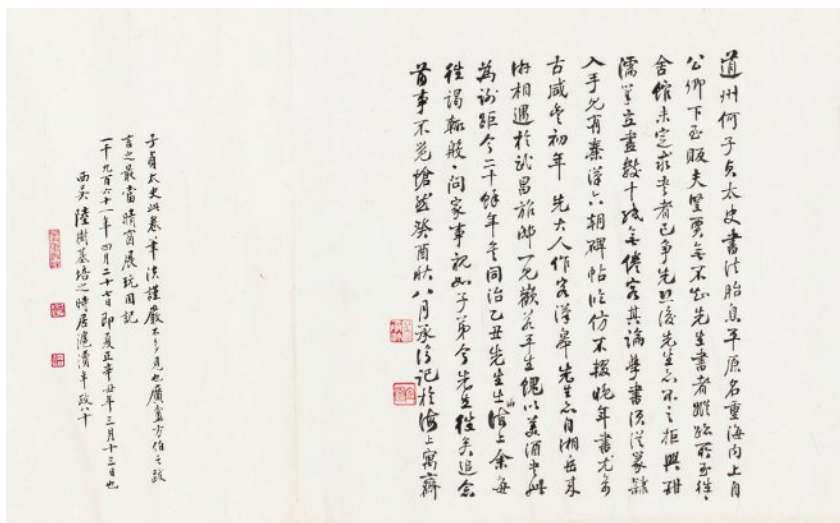 道州何子貞太史書法胎息平原名重海內上自
公卿下至販夫豎賈無不知先生書者蹤跡所至往〻
舍館未定求書者已爭先恐後先生亦不之拒興酣
濡筆立盡數十紙無倦容其論學書須從篆隸
入手凡有秦漢六朝碑帖臨仿不輟晚年書尤奇
古咸豐初年先大人作客漢皋先生亦自湘岳來
游相遇於武昌旅邸一見歡若平生餽以美酒書此
為謝距今二十餘年矣同治乙丑先生遊海上余每
往謁輒殷〻問家事視如子弟今先生往矣追念
昔事不覺愴然癸酉秋八月承濬記於海上寓齋
子貞太史此卷筆法謹嚴不多見也廣盦方伯之跋
言之最當晴窗展玩因記
一千九百六十一年四月二十七日即夏正辛丑年三月十三日也
西吳陸樹基培之時居滬瀆年政八十